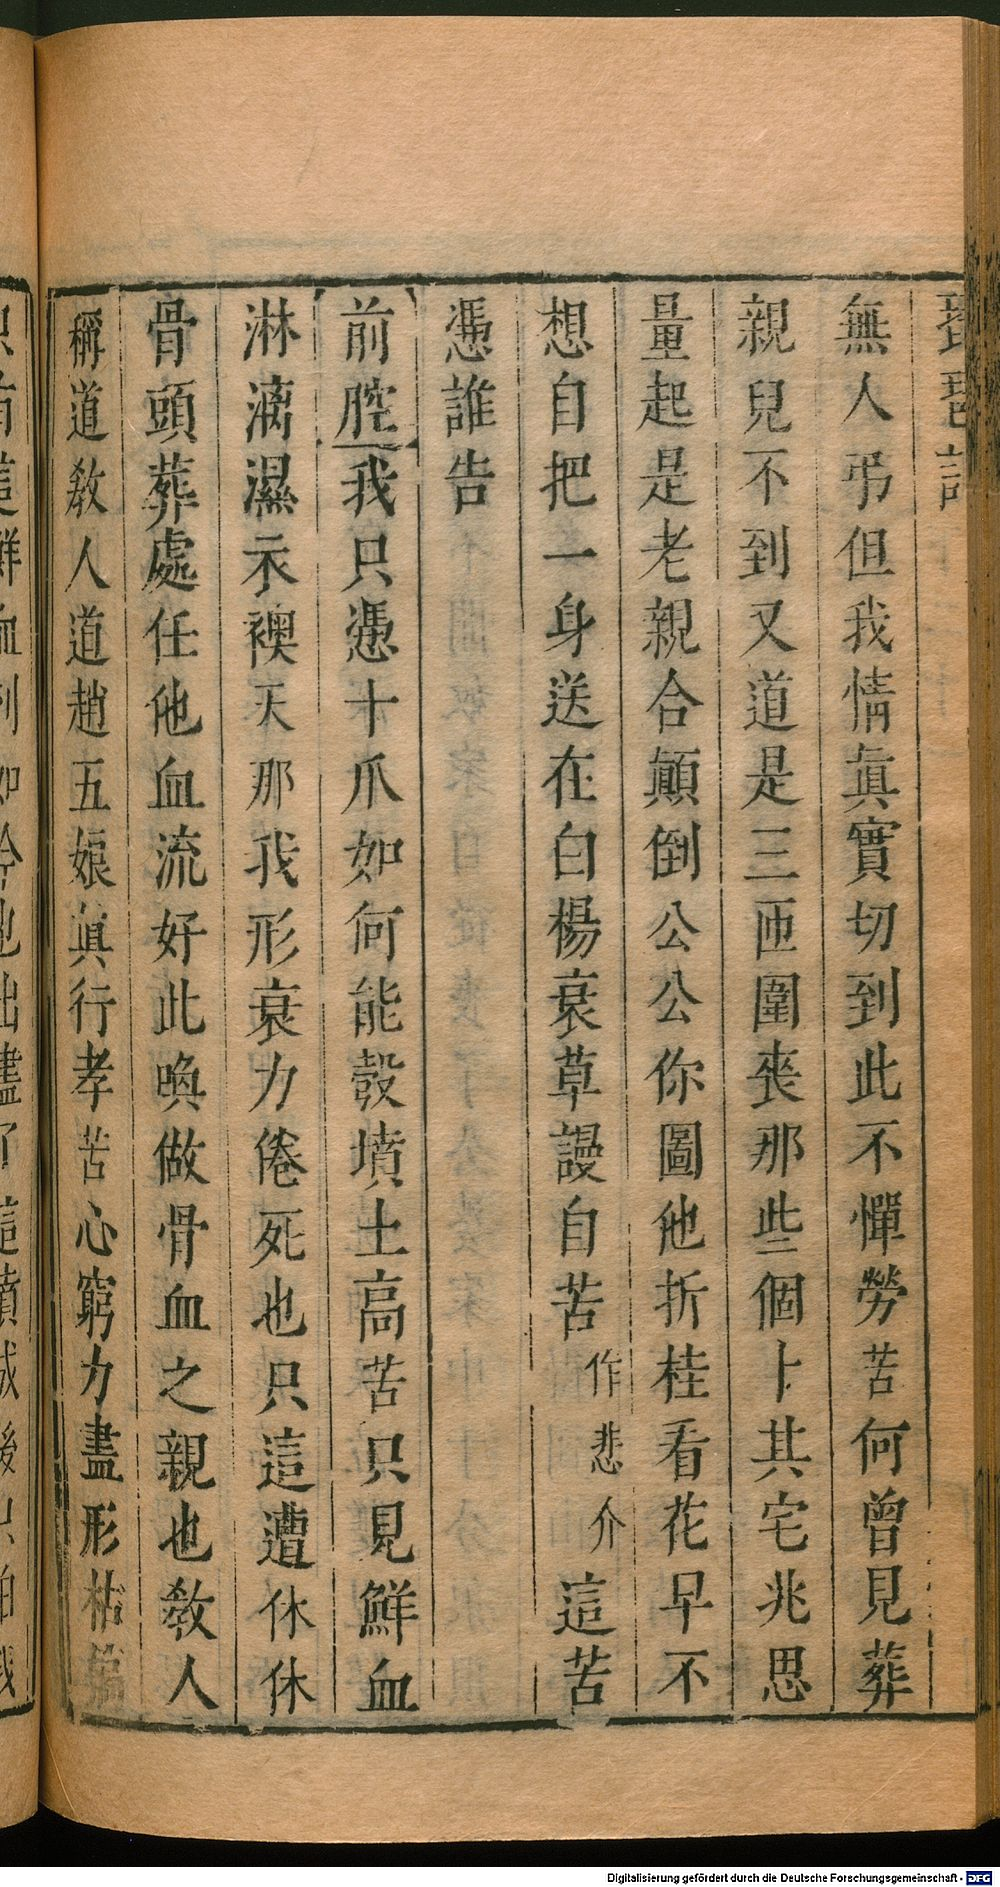 琵琶記
無人弔但我情眞實切到此不憚勞苦何曾見葬
親兒不到又道是三匝圍喪那些個卜其宅兆思
量起是老親合顚倒公公你圖他折桂看花早不
想自把一身送在白楊衰草謾自苦作悲介這苦
憑誰告
前腔我只憑十爪如何能彀墳土高苦只見鮮血
淋漓濕衣襖天那我形衰力倦死也只這遭休休
骨頭葬處任他血流好此喚做骨血之親也敎人
稱道敎人道趙五娘眞行孝苦心窮力盡形枯
這鮮血到如今也出盡了這墳成後只怕我
Digitalisierung gefördert durch die Deutsche Forschungsgemeinschaft - DFG